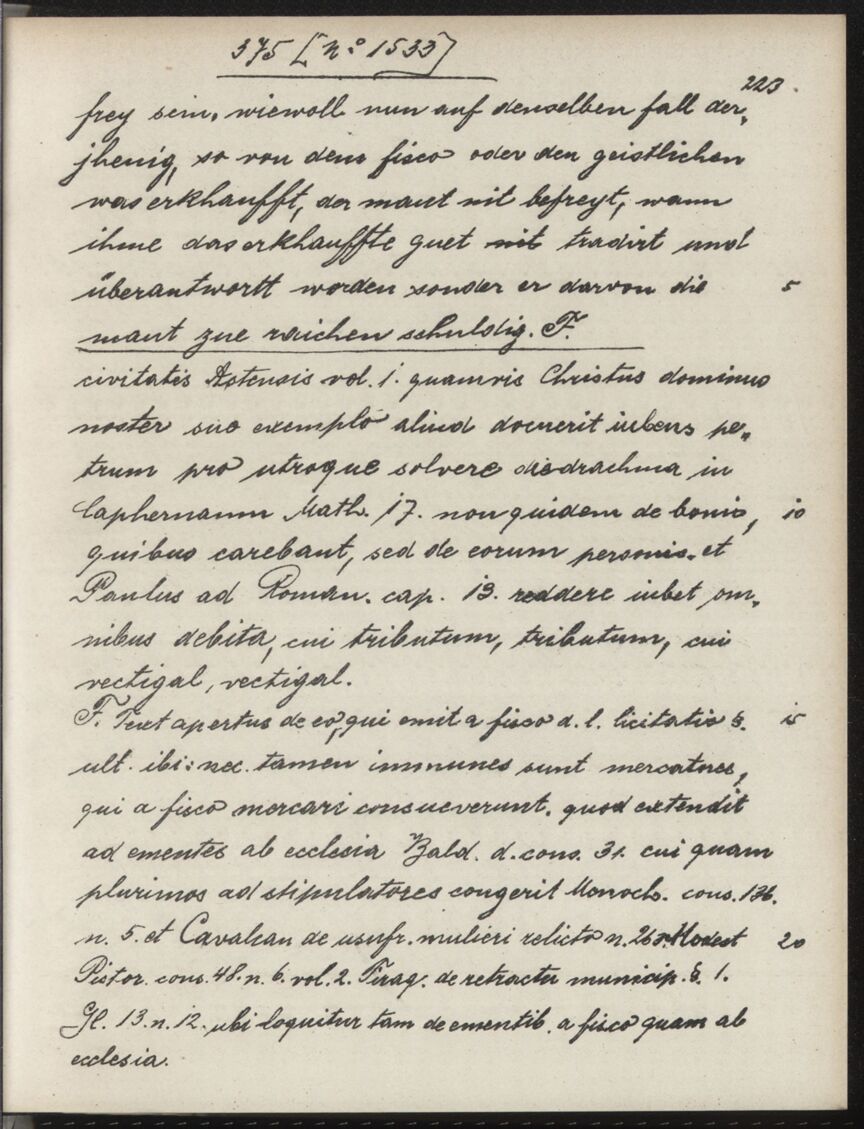 375 [N.º 1533]
223.
frey sein, wiewoll nun auf denselben fall der„
jhenig, so von dem fisco oder den geistlichen
was erkhaufft, der maut nit befreyt, wann
ihme das erkhauffte guet nit tradirt und
überantwortt worden sonder er darvon die 5
maut zue raichen schuldig. F.
civitatis Astensis vol. 1. quamvis Christus dominus
noster suo exemplo aliud docuerit iubens pe„
trum pro utroque solvere didrachma in
Caphernaum Math. 17. non quidem de bonis, 10
quibus carebant, sed de eorum personis. et
Paulus ad Roman. cap. 13. reddere iubet om„
nibus debita, cui tributum, tributum, cui
vectigal, vectigal.
F. Text apertus de eo, qui emit a fisco d. l. licitatio §. 15
ult. ibi: nec tamen immunes sunt mercatores,
qui a fisco mercari consueverunt. quod extendit
ad ementes ab ecclesia Bald. d. cons. 31. cui quam
plurimos ad stipulatores congerit Menoch. cons. 136.
n. 5. et Cavalcan de usufr. mulieri relicto n. 263. Modest 20
Pistor. cons. 48. n. 6. vol. 2. Tiraq. de retractu municip. §. 1.
Gl. 13. n. 12. ubi loquitur tam de ementib. a fisco quam ab
ecclesia.